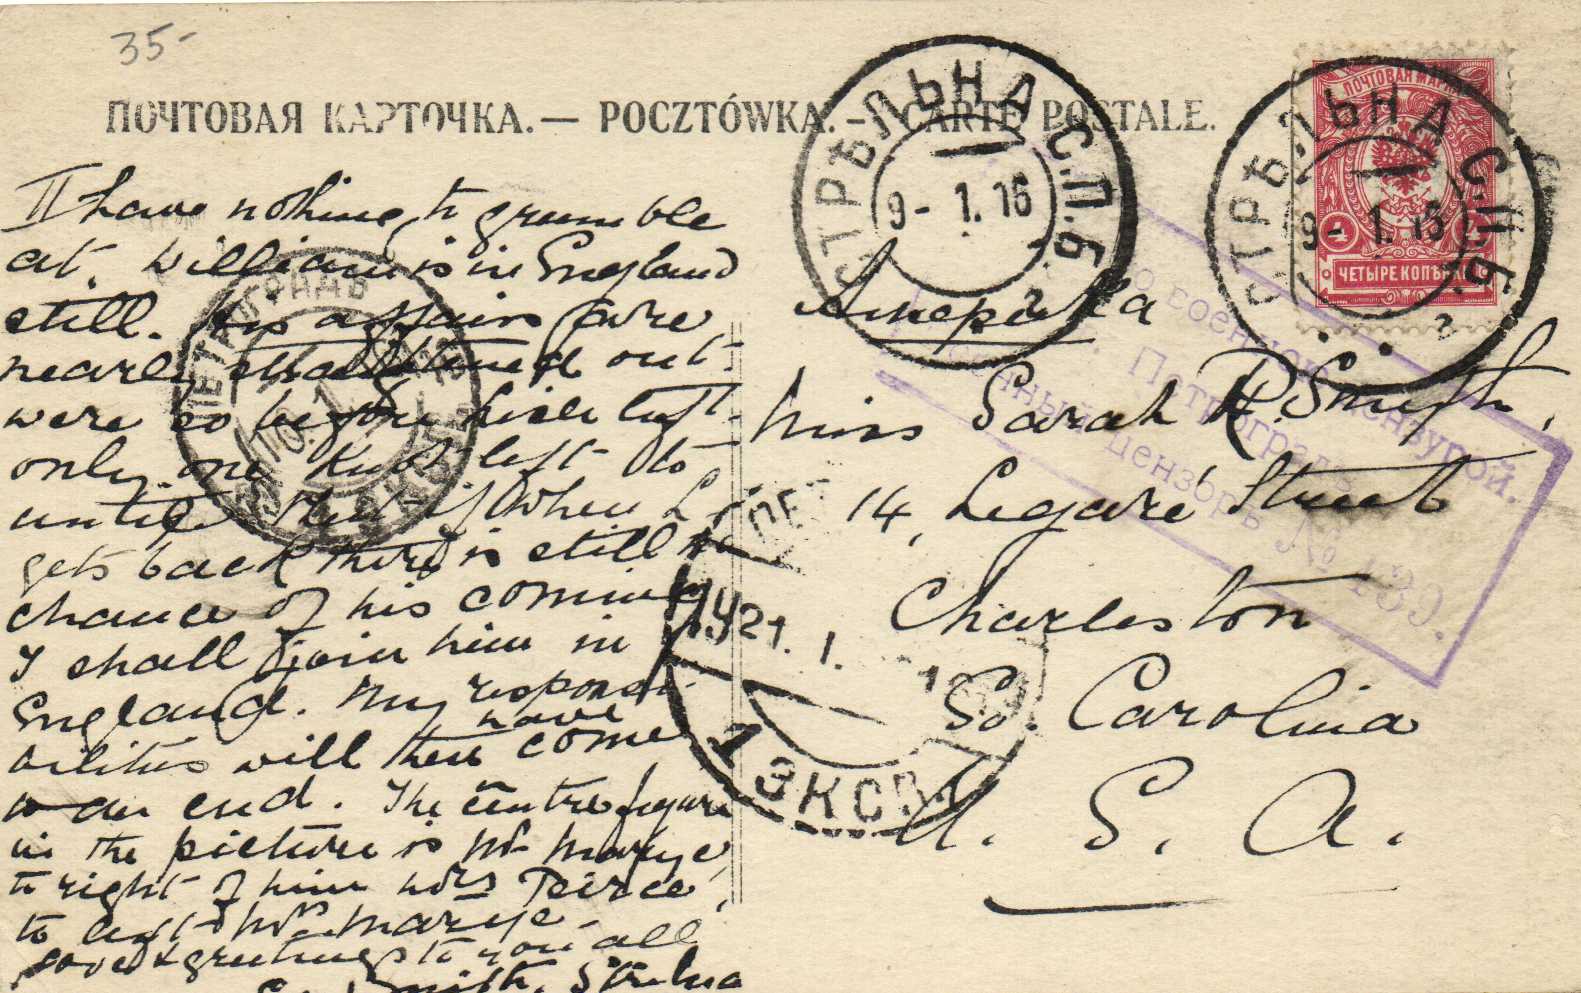 35-
ПОЧТОВАЯ КАРТОЧКА. — POCZTÓWKA. — CARTE POSTALE.
II have nothing to grumble
at. William is in England
still. His affairs are
nearly straightened out-
were so before
only one left to
until. Then if when
gets back there is still a
chance of his coming
I shall join him in
England. My responsi-
bilities will then have come
to an end. The centre figure
in the picture is Mr Marye,
to right of him Mrs Peirce,
to left Mrs Marye -
love & greetings to you all
Smith, Strelna
Америка
Miss Sarah R. Smyth,
14, Legaré Street
Charleston
So. Carolina
U. S. A.
СТРѢЛЬНА С.П.Б.
9- 1. 16
2
СТРѢЛЬНА С.П.Б.
9- 1. 16
2
ПОЧТОВАЯ МАРКА
4
ЧЕТЫРЕ КОП
военной цензурой.
Петроградъ
Военный цензоръ № 139.
ПЕТРОГРАДЪ
10. 1
21. 1.
1 ЭКСП.